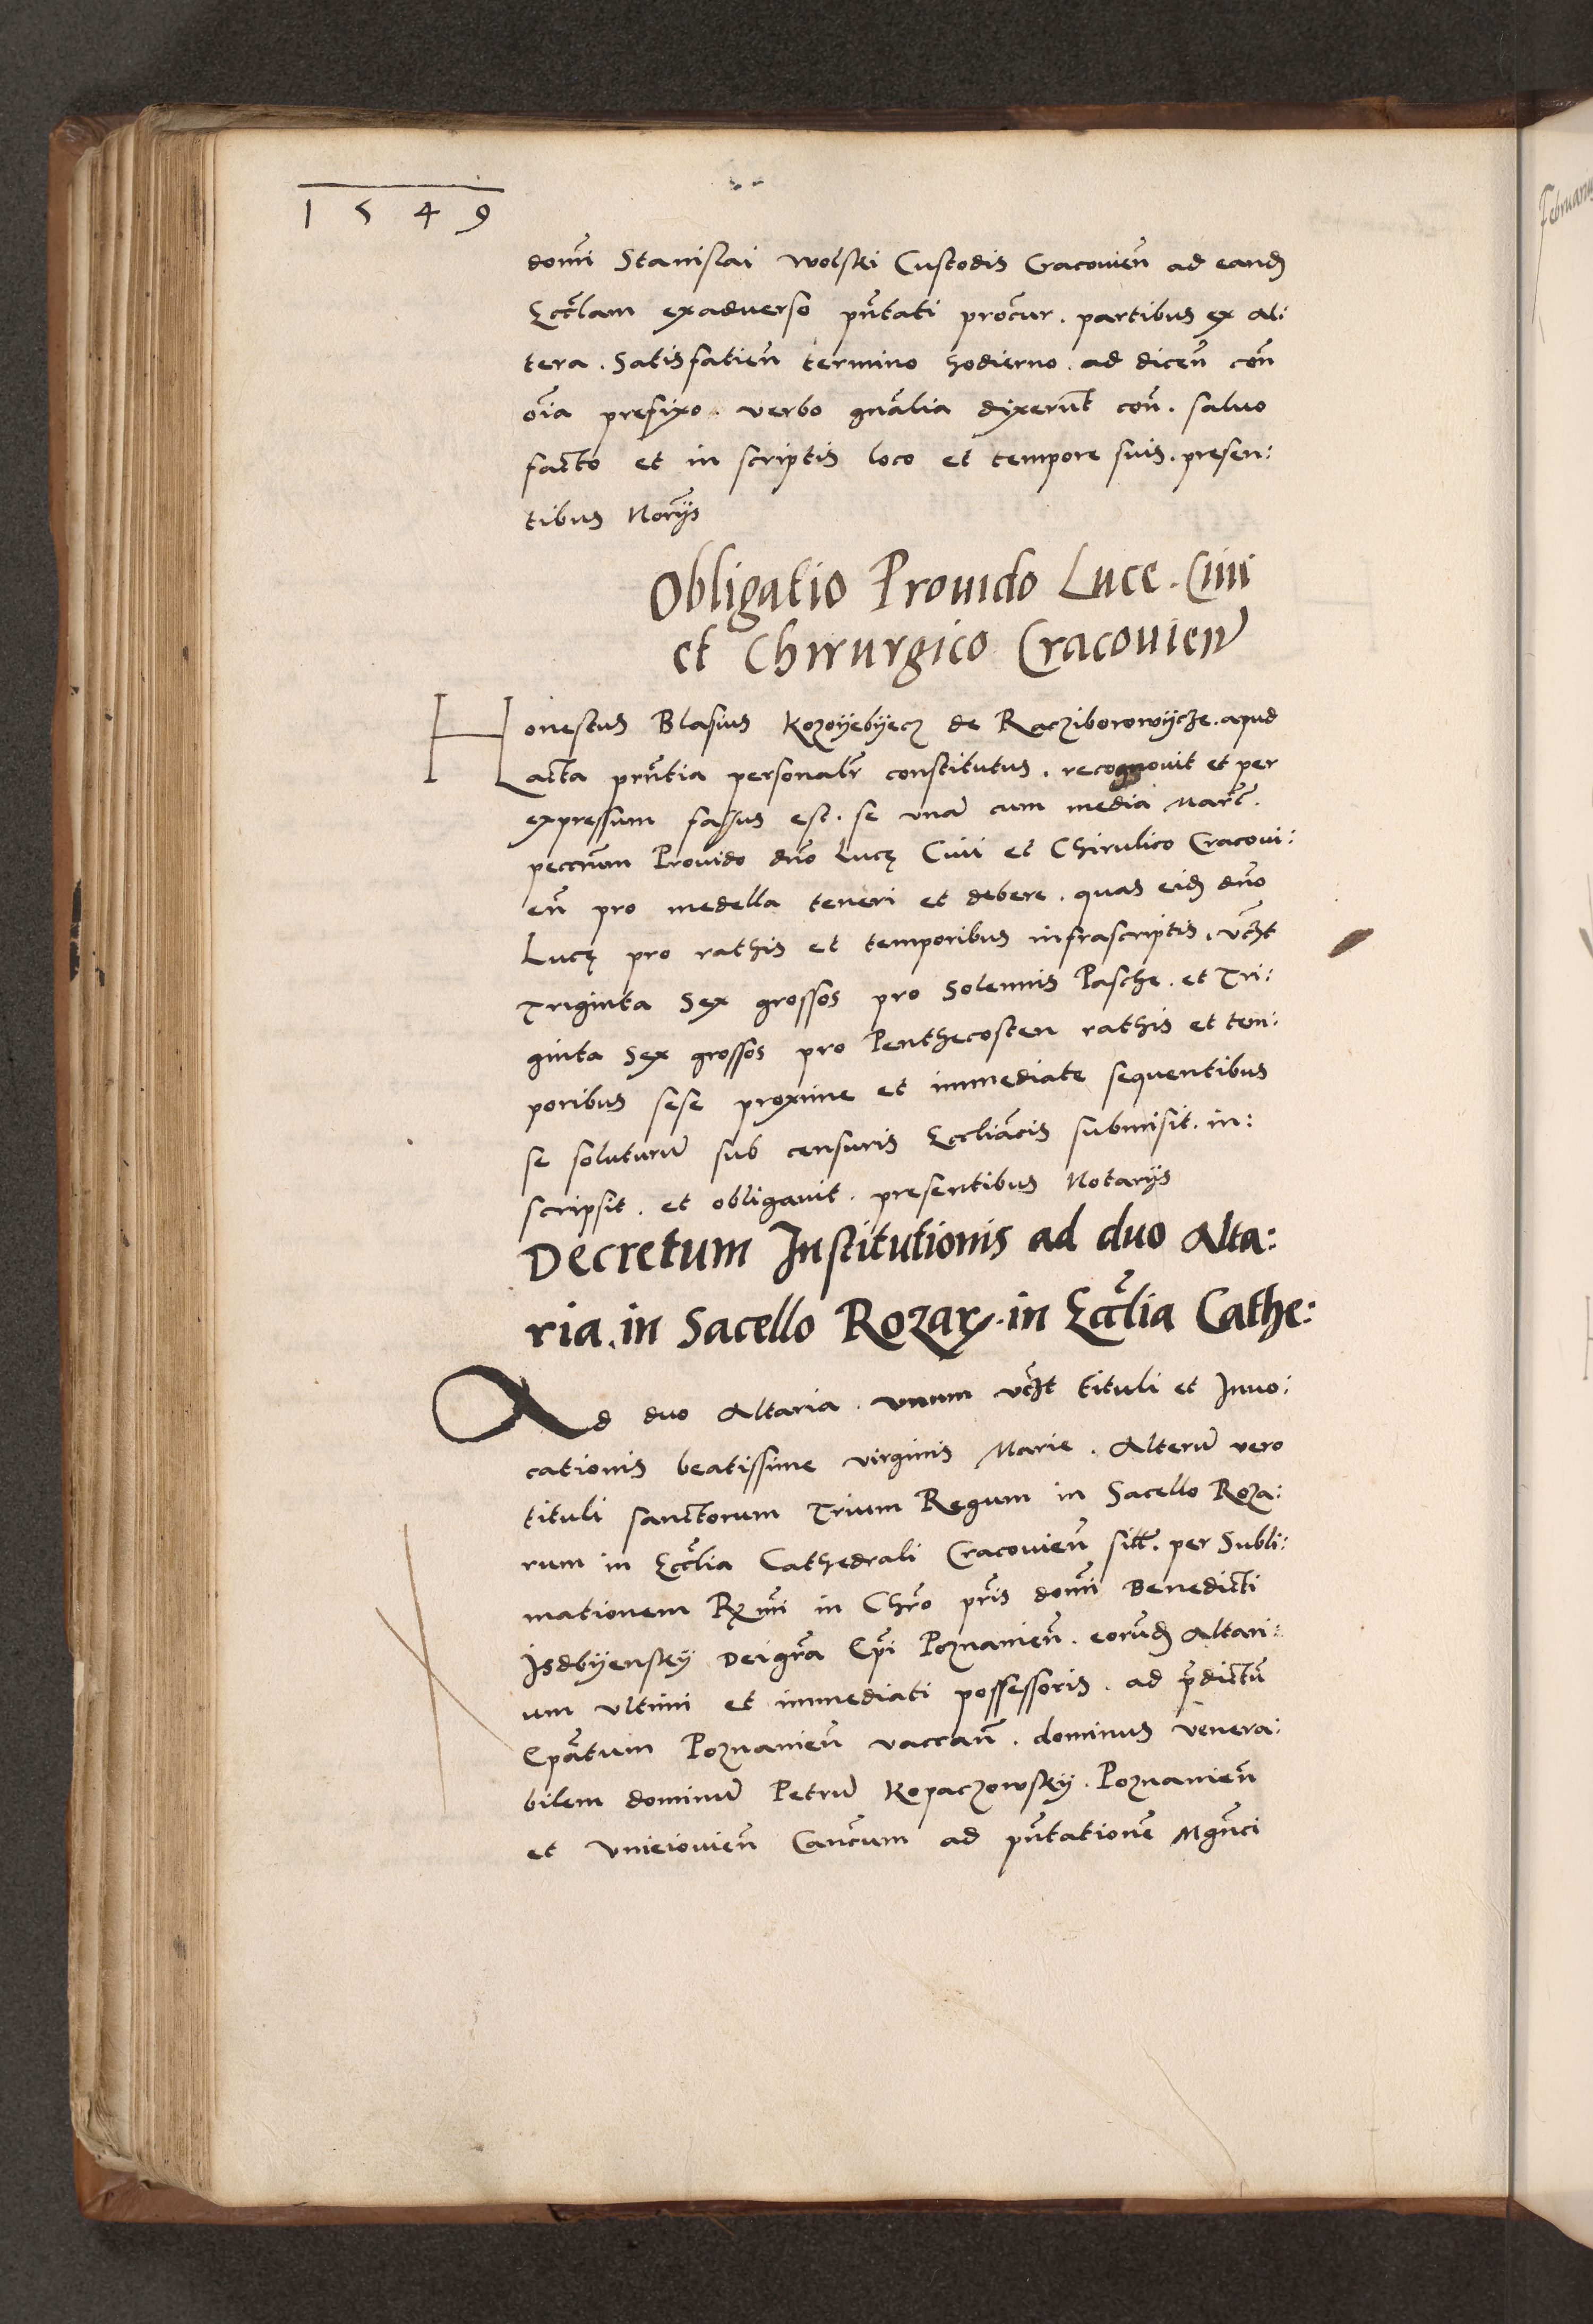 1549
domi Stanislai Wolski Custodis Cracovien̄ ad eand
Ecclam exadverso pn̄tati procur. partibus ex al:
tera. Satisfatien̄ termino hodierno. ad dicen̄ con̄
oīa prefixo. verbo gn̄alia dixerunt con̄. salvo
facto et in scriptis loco et tempore suis. presen:
tibus Norijs
Obligatio Provido Luce. Civi
et Chirurgico Cracovien̄
Honestus Blasius Kozoyebyecz de Racziborowycze. apud
acta prn̄tia personalr̄ constitutus. recognovit et per
expressum fassus est. se unā cum media Marc̄.
peccn̄um Provido dn̄o Lucę Civi et Chirulico Cracovi:
en̄ pro medella teneri et debere. quas eid dn̄o
Lucę pro rathis et temporibus infrascriptis. vczt
Triginta Sex grossos pro Solennis Pasche. et Tri:
ginta Sex grossos pro Penthecosten rathis et tem:
poribus sese proxime et immediate sequentibus
se soluturū sub censuris Eccliācis submisit. in:
scripsit. et obligavit. presentibus Notarijs
Decretum Institutionis ad duo Alta:
ria. in Sacello Rozar. in Ecclīa Cathe:
Ad duo Altaria. unum vczt tituli et Invo:
cationis beatissime virginis Marie. Alterū vero
tituli sanctorum Trium Regum in Sacello Roza:
rum in Ecclīa Cathedrali Cracovien̄ sitt. per Subli:
mationem Rx̄mi in Chr̄o pr̄is domi Benedicti
Isdbyensky Dei gr̄a Ep̄i Poznanien̄. eorund Altari:
um ultimi et immediati possessoris. ad p̄dictū
Ep̄atum Poznanien̄ vaccan̄. dominus venera:
bilem dominū Petrū Kopaczowsky. Poznanien̄
et Unieiovien̄ Can̄cum ad pn̄tationē Mgn̄ci
Februarius